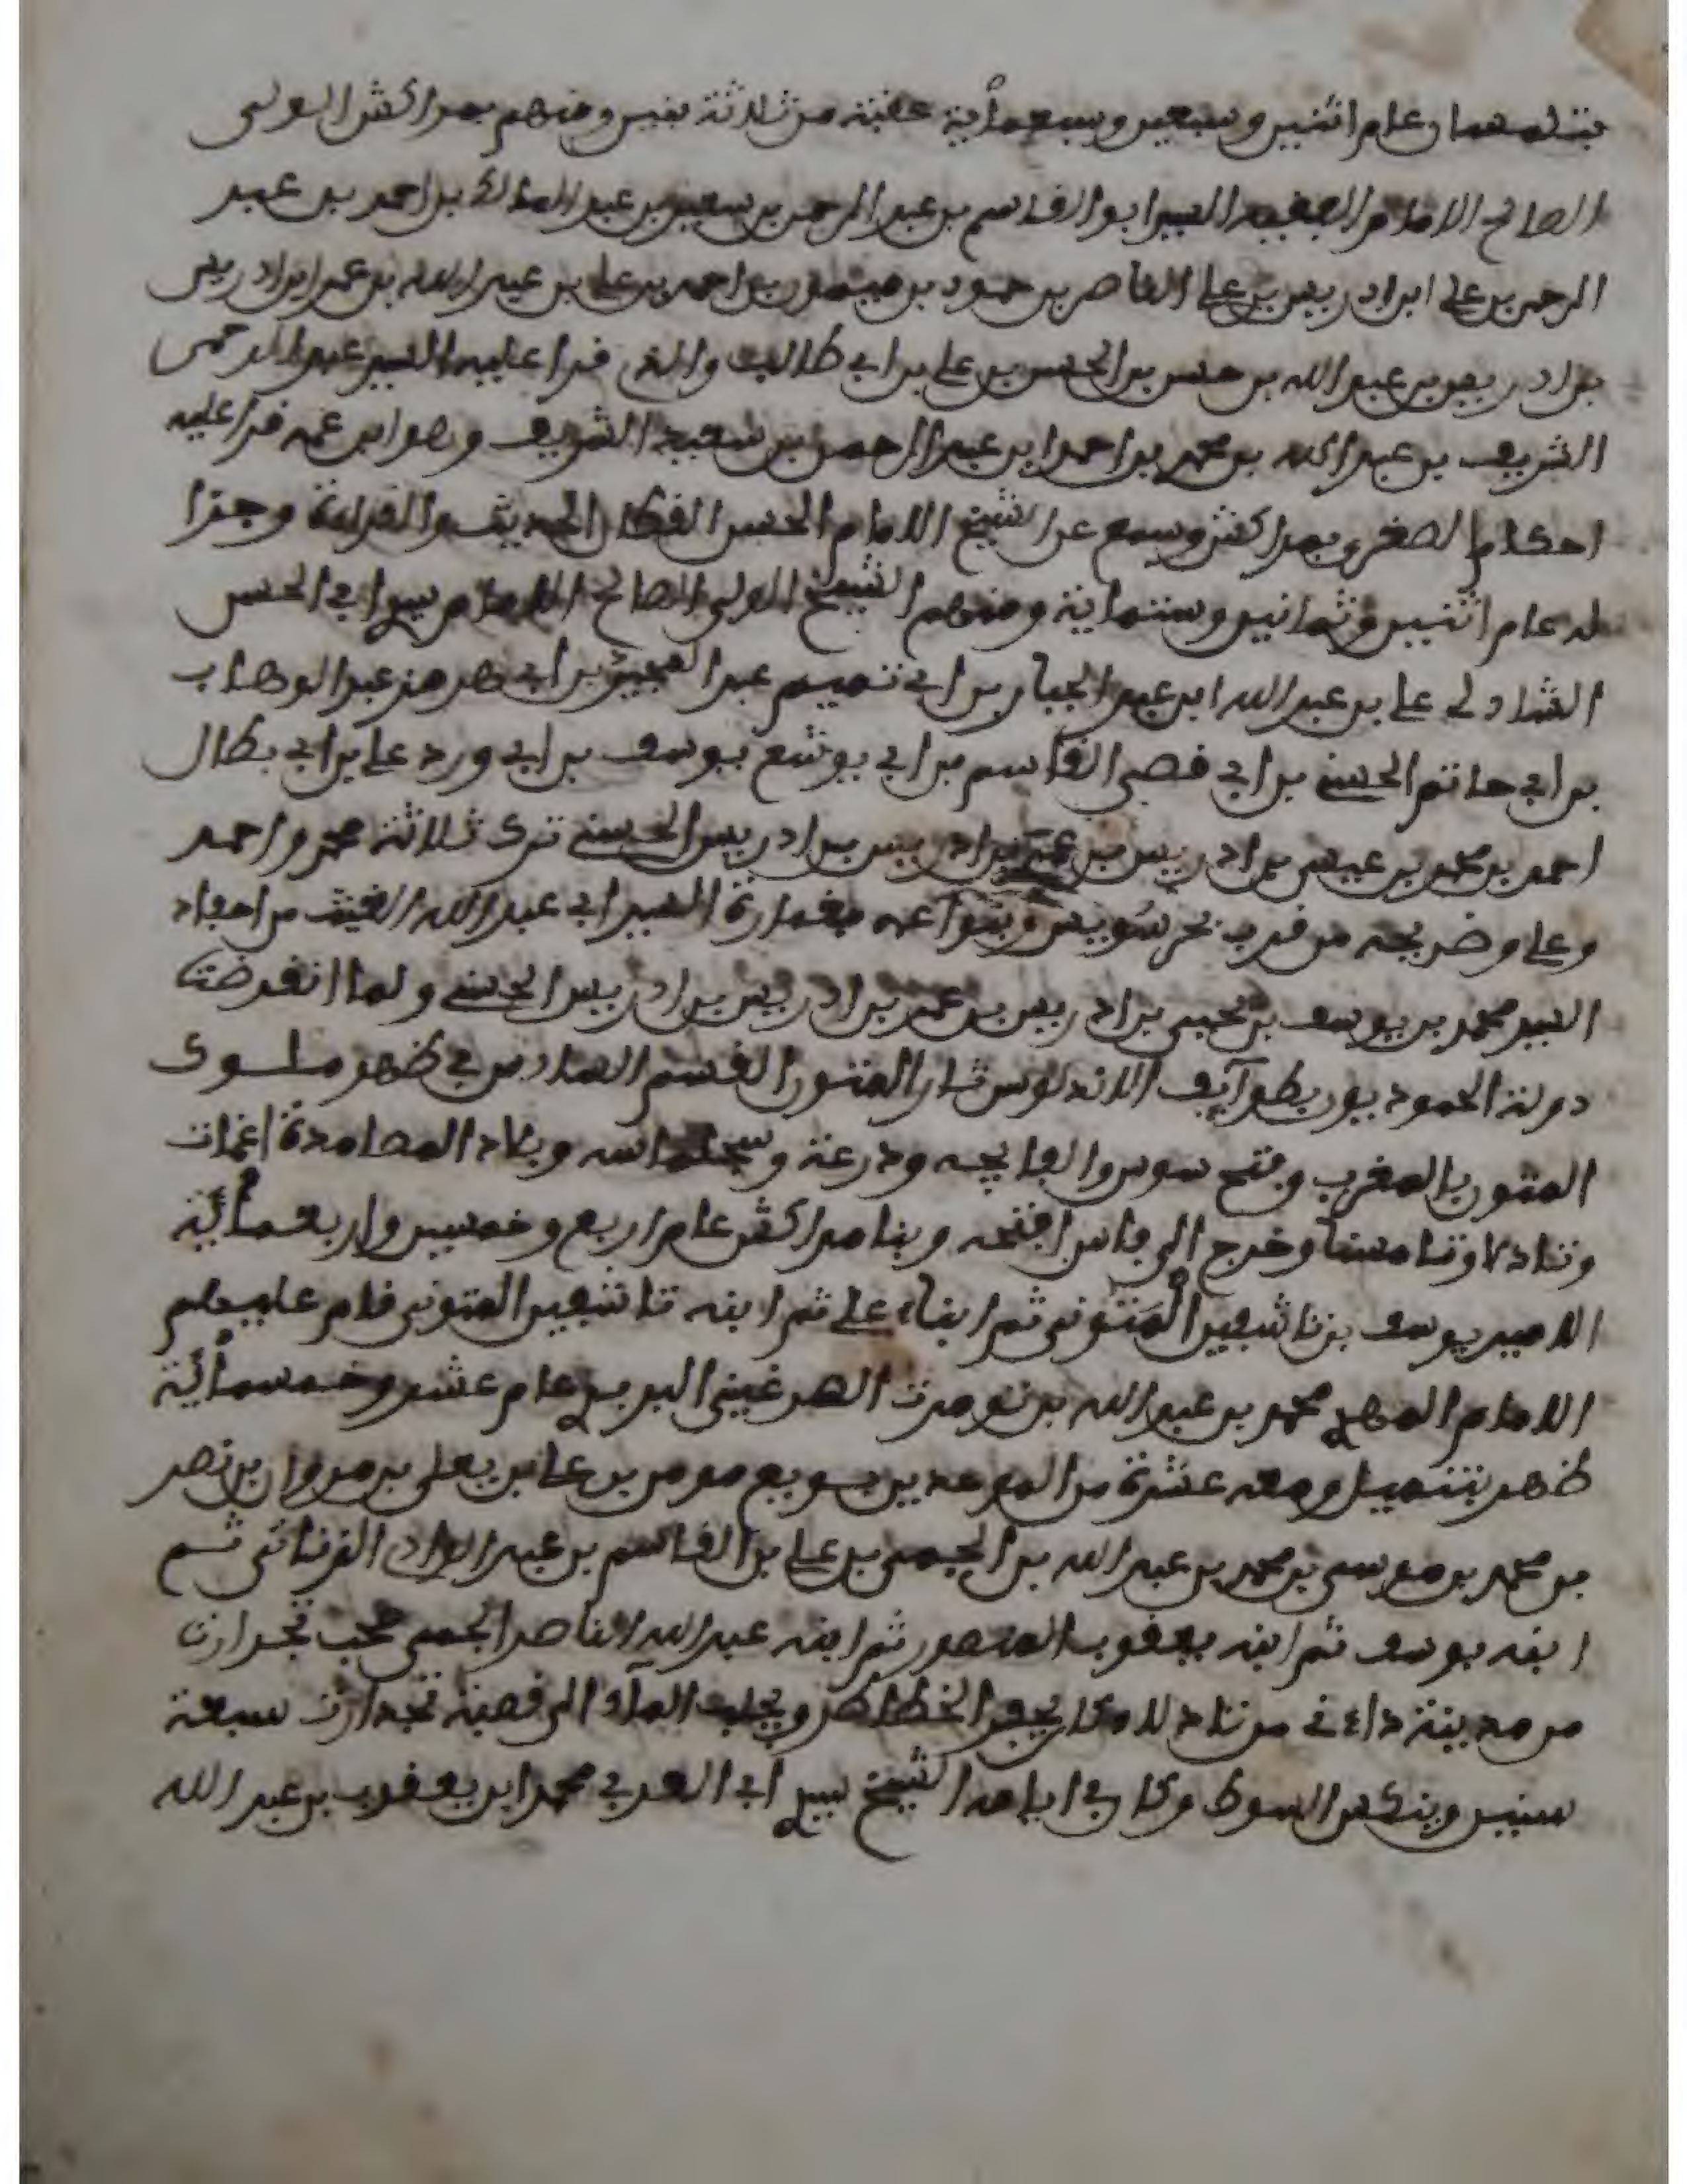 بتلمسان عام اثنين وسبعين وسبعمأية عقبه من ثلاثة بنين ومنهم بمراكش الولي
الصالح الامام الفقيه السيد ابو القاسم بن عبد الرحمن بن سعيد بن عبد المالك بن احمد بن عبد
الرحمن بن علي ابن ادريس بن علي الناصر بن حمود بن ميمون بن احمد بن علي بن عبيد الله بن عمر ابن ادريس
بن ادريس بن عبد الله بن حسن بن الحسن بن علي بن ابي طالب والذي قرا عليه السيد عبد الرحمن
الشريف بن عبد الله بن محمد بن احمد ابن عبد الرحمن بن سعيد الشريف وهو ابن عمه قرا عليه
احكام الصغرى بمراكش وسمع عن الشيخ الامام الحسن القطان الحديث والقراءة وجزا
له عام اثنين وثمانين وستماية ومنهم الشيخ الولي الصالح الامام سيد ابي الحسن
الشاذلي علي بن عبد الله ابن عبد الجبار بن ابي تميم عبد المجيد بن ابي هرمز عبد الوهاب
بن ابي حاتم الحسني بن ابي قصي القاسم بن ابي يوشع يوسف بن ابي ورد علي بن ابي بطال
احمد بن محمد بن عيسى بن ادريس بن عمر بن ادريس بن ادريس الحسني ترك ثلاثة محمد واحمد
وعلي وضريحه من قرب بحر سويس وبنوا عمه بغمارة السيد ابي عبد الله الغيث من احفاد
السيد محمد بن يوسف بن يحيى بن ادريس بن عمر بن ادريس بن ادريس الحسني ولما انقرضت
دولة الحموديون بطوآيف الاندلوس ثار المتون القسم السادس في ظهر ملوك
المتون بالمغرب وفتح سوس والفايجه ودرعة وسجلماسه وبلاد المصامدة اغمات
وتادلا وتامسنا وخرج الى فاس افتتحه وبنا مراكش عام اربع وخمسين واربعمأية
الامير يوسف بن تاشفين المتوني ثم ابناه علي ثم ابنه تاشفين المتوني قام عليهم
الامام المهدي محمد بن عبد الله بن تومرت الهرغيني البربري عام عشر وخمسمأية
ظهر بتنميل ومعه عشرة من الموحدين بويع مومن بن علي بن يعلى بن مروان بن نصر
بن محمد بن موسى بن محمد بن عبد الله بن يحيى بن علي بن القاسم بن عبد الواد الزناتي ثم
ابنه يوسف ثم ابنه يعقوب المنصور ثم ابنه عبد الله الناصر
من مدينة داءي من تادلا ويجلب المآء الى قصبة سبعة
سنين وكان في ايامه الشيخ سيدي ابي العربي محمد ابن يعقوب بن عبد الله